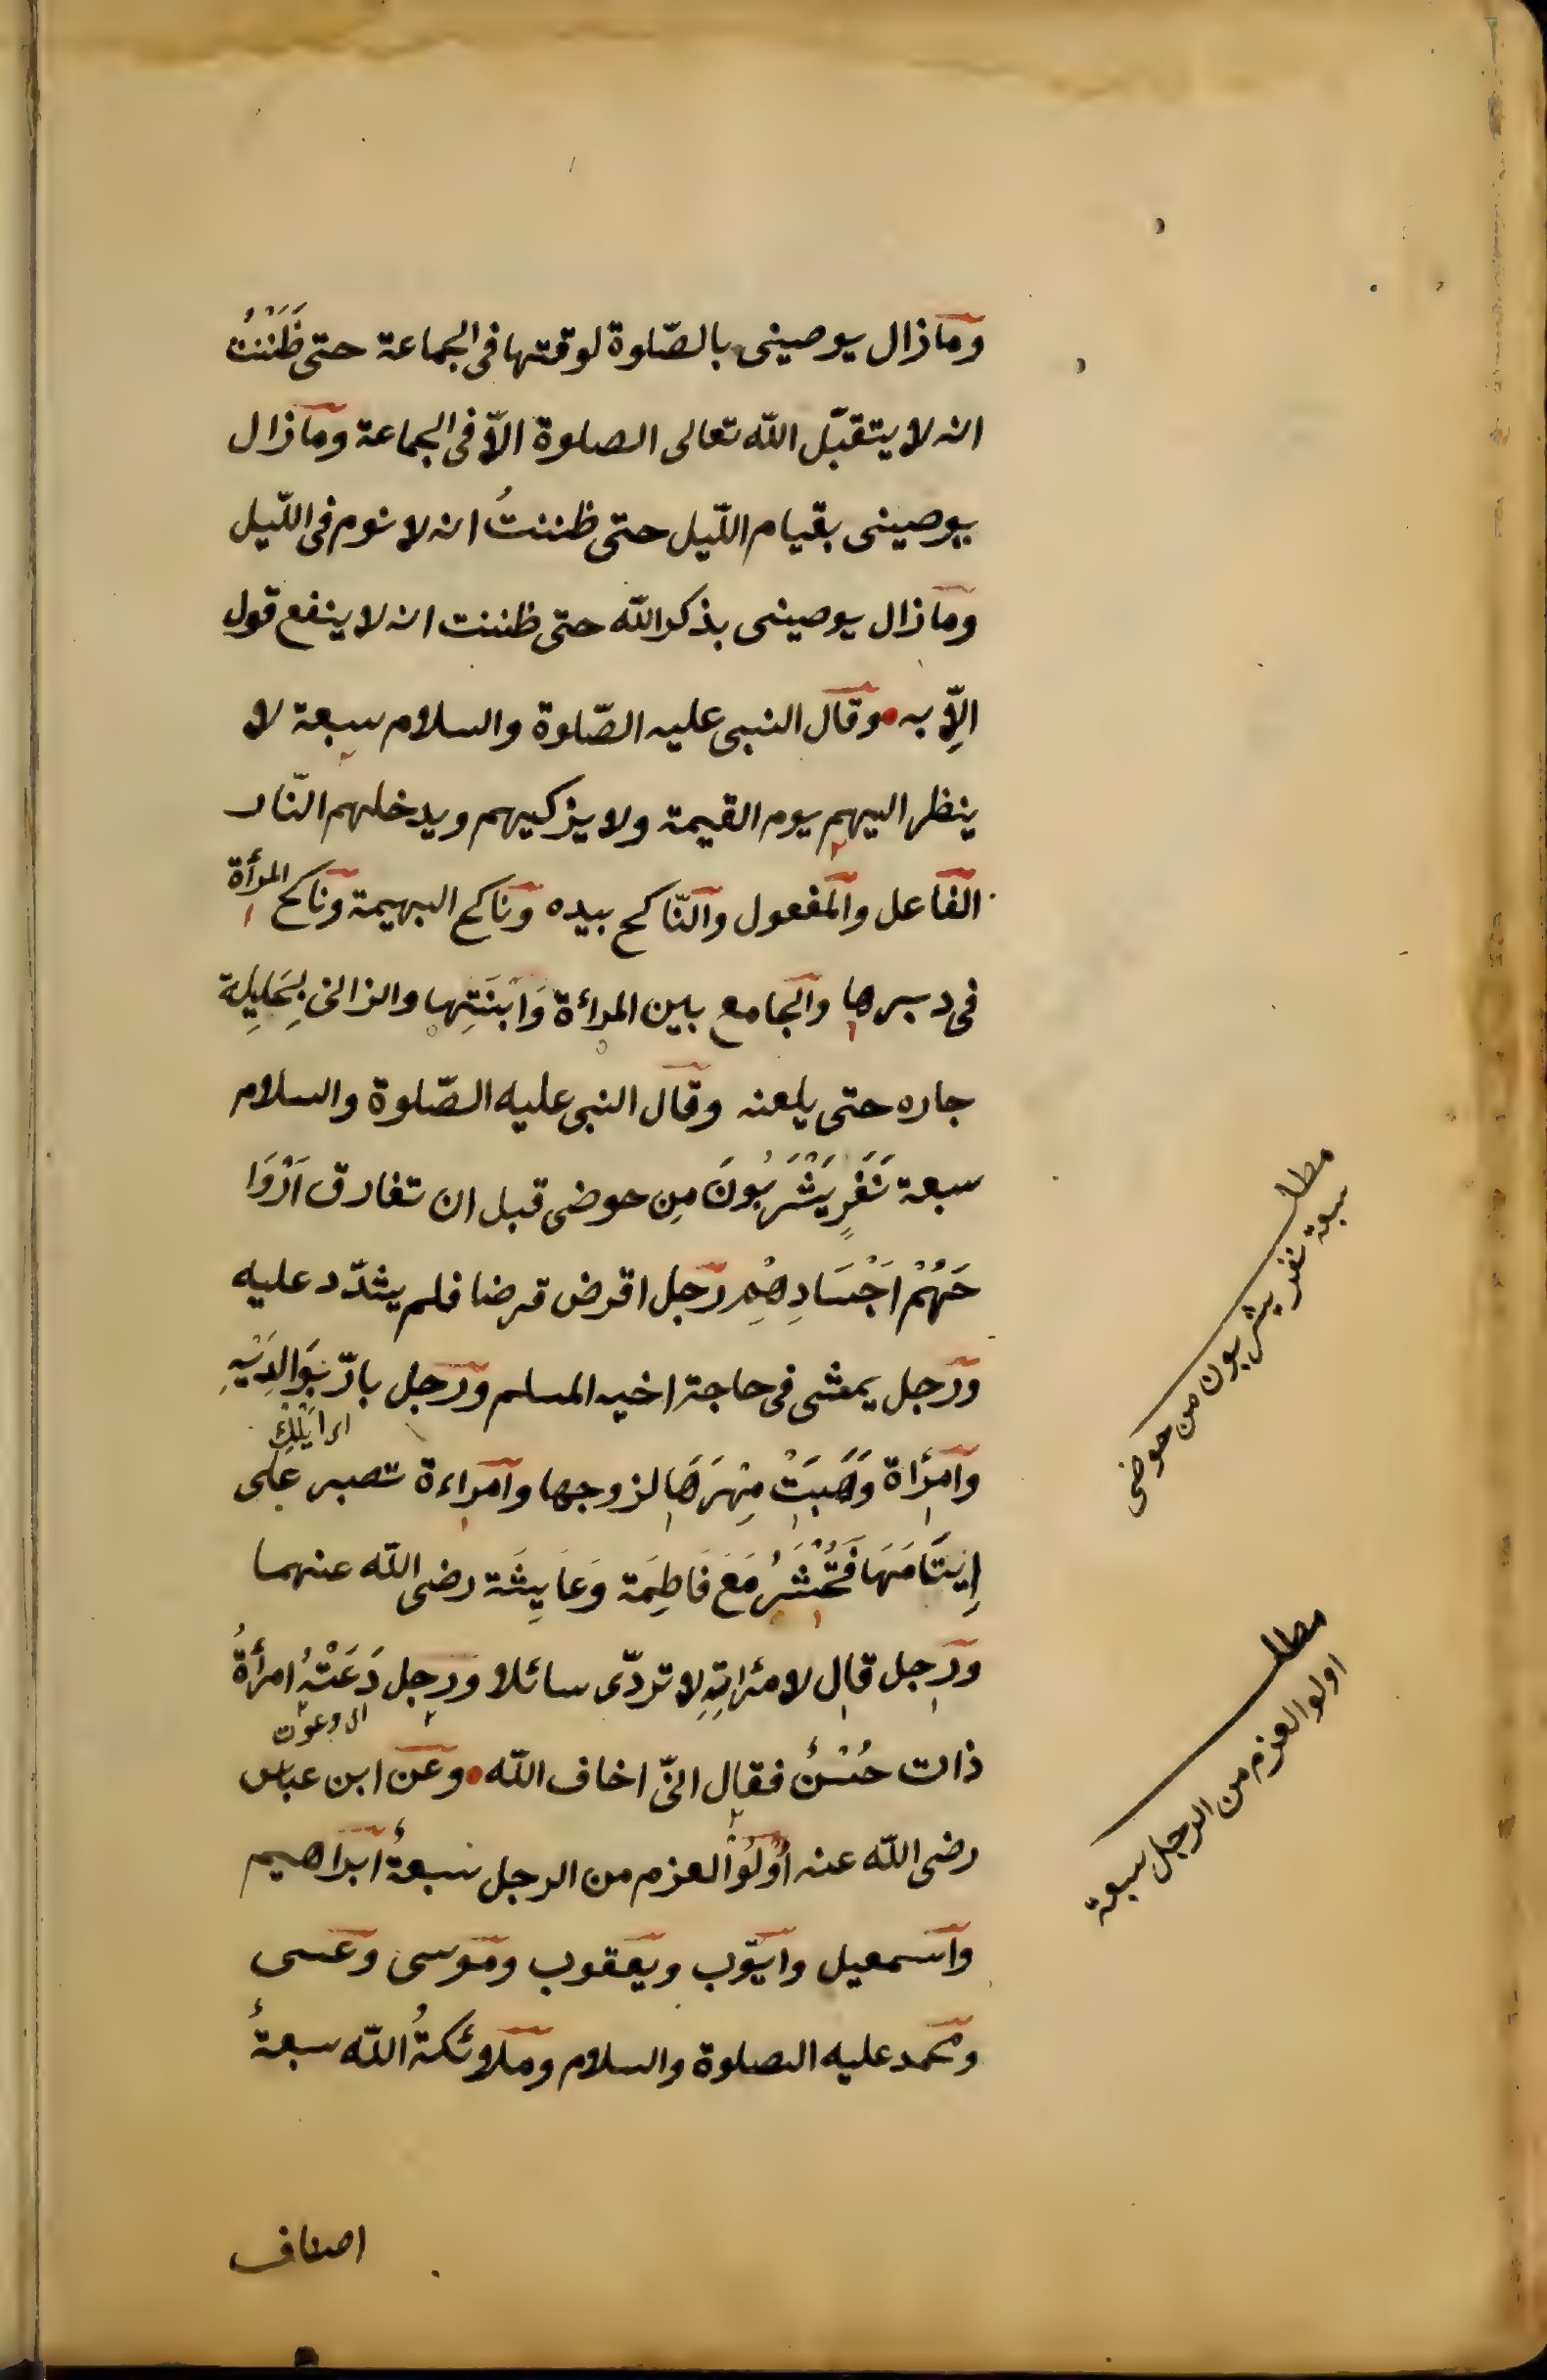 ومازال يوصينى بالصّلوة لوقتها فى الجماعة حتى ظَنَنْتُ
انه لا يتقبّل الله تعالى الصلوة الّا فى الجماعة ومازال
يوصينى بقيام اللّيل حتى ظننتُ انه لا نوم فى اللّيل
ومازال يوصينى بذكر الله حتى ظننت انه لا ينفع قول
اِلّا به وقال النبى عليه الصّلوة والسلام سبعة لا
ينظر اليهم يوم القيمة ولا يزكيهم ويدخلهم النّار
الفاعل والمفعول والنّاكح بيده وناكح البهيمة وناكح المرأة
فى دبرها والجامع بين المرأة وَابْنَتِها والزانى بِحَلِيلِة
جاره حتى يلعنه وقال النبى عليه الصّلوة والسلام
سبعة نَفَرٍ يَشْرَبُونَ مِن حوضى قبل ان تفارق اَرْوَا
حَهُمْ اَجْسَادِهِمْ رجل اقرض قرضا فلم يشدّد عليه
ورجل يمشى فى حاجة اخيه المسلم ورجل بارّ بِوَالِدَيْهِ
وامرأة وَهَبَتْ مِهْرَهَا لزوجها وامراءة تصبر على
اِيتَامَهَا فَتُحْشَرُ مَعَ فَاطِمَة وَعَايِشَة رضى الله عنهما
ورجل قال لامئراتِهِ لا تردّى سائلا ورجل دَعَتْهُ امرأةُ
اى دعوت
ذات حُسْنُ فقال انّى اخاف الله وعن ابن عباس
رضى الله عنه اُولُوْا العزم من الرجل سبعةُ ابراهيم
واسمعيل وايّوب ويعقوب وموسى وعسى
ومحمد عليه الصلوة والسلام وملائكةُ الله سبعةُ
اصناف
مطلب
سبعة نفر يشربون من حوضى
مطلب
اولو العزم من الرجل سبعة